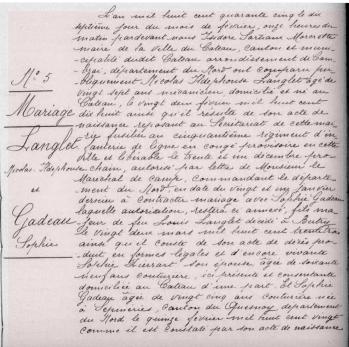 L'an mil huit cent quarante cinq le du
septième jour du mois de février, onze heures du
matin pardevant nous Isidore
maire de la ville du Cateau, canton et muni-
cipalité dudit Cateau arrondissement de Cam-
brai, département du Nord ont comparu pu-
bliquement Nicolas Ildephonse Langlet âgé de
vingt sept ans mécanicien domicilié et né au
Cateau, le vingt deux février mil huit cent
dix huit ainsi qu'il résulte de son acte de
naissance reposant au secrétariat de cette mai-
rie fusilier au cinquantième régiment d'in-
fanterie de ligne en congé provisoire en cette
ville et libérable le trente et un décembre pro-
chain, autorisé par lettre de Monsieur le
Maréchal de camp, commandant le départe-
ment du Nord, en date du vingt et un janvier
dernier à contracter mariage avec Sophie Gadeau
laquelle autorisation restera ci annexé, fils ma-
jeur de feu Louis Langlet décédé à
le vingt deux mars mil huit cent trente trois
ainsi que il conste de son acte de décès pro-
duit en formes légales et encore vivante
Sophie son épouse âgée de soixante
neuf ans couturière, ici présente et consentante
domiciliée au Cateau d'une part. Et Sophie
Gadeau âgée de vingt cinq ans couturière née
à canton du Quesnoy département
du Nord le quinze février mil huit cent vingt
comme il est constaté par son acte de naissance
N° 5
Mariage
Langlet
Nicolas Ildephonse
et
Gadeau
Sophie